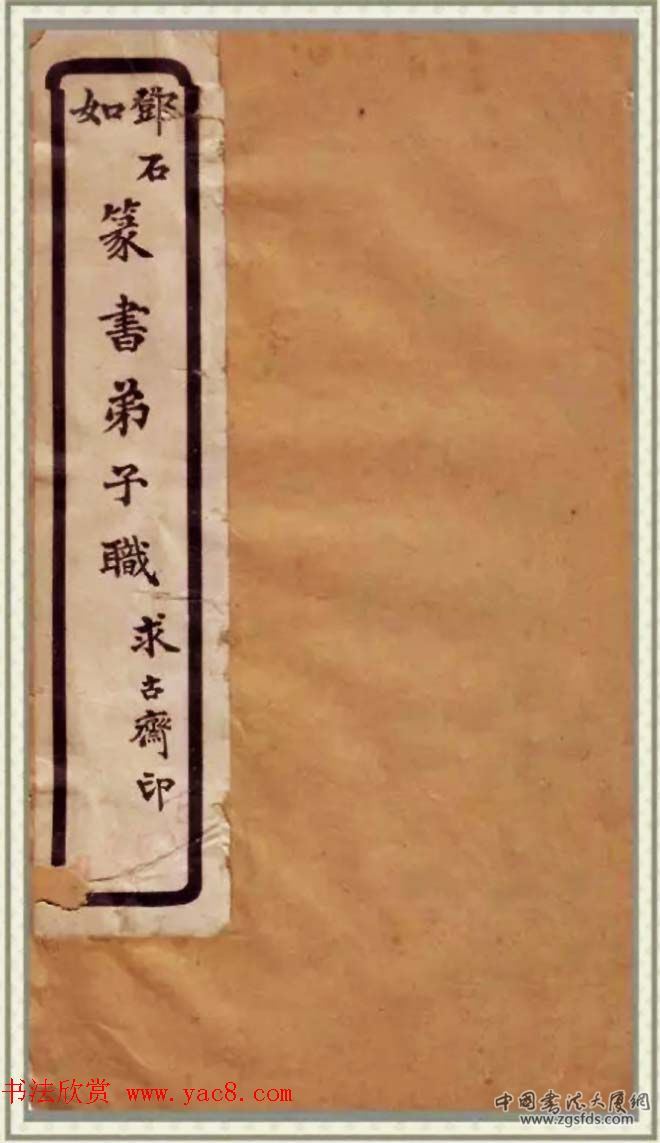 鄧石如
篆書弟子職
求古齋印
书法欣赏 www.yac8.com
中国书法大厦网
www.zgsfds.com